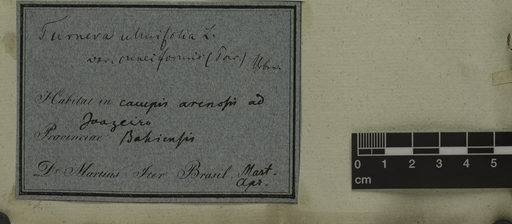 Turnera ulmifolia L.
var. cuneiformis (Poir) Urban
Habitat in campis arenosis ad
Joazeiro
Provinciae Bahiensis
Dr. Martius Iter Brasil. Mart.
Apr.
0 1 2 3 4 5
cm